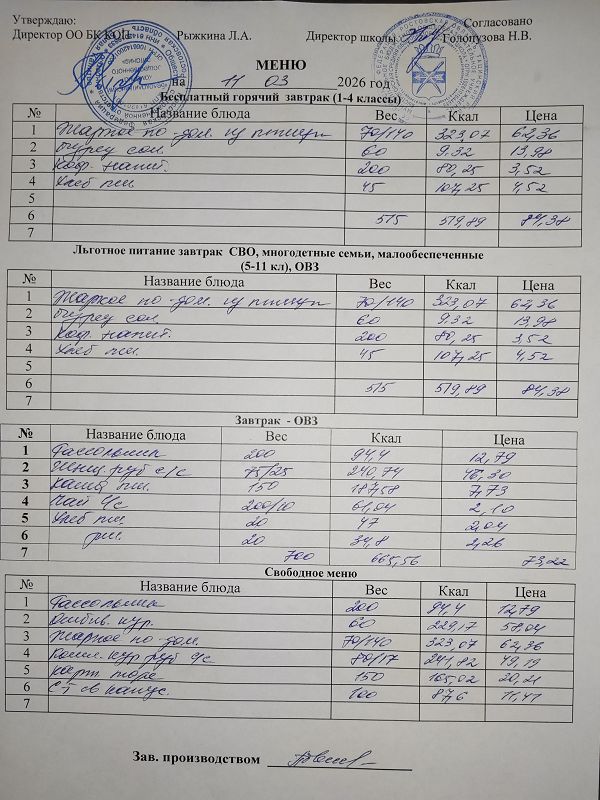 Утверждаю:
Согласовано
Директор ОО БК КОЦ Рыжкина Л.А. Директор школы Голопузова Н.В.
МЕНЮ
на 11 03 2026 год
Бесплатный горячий завтрак (1-4 классы)
№ Название блюда Вес Ккал Цена
1 Жаркое по-дом. из птицы 70/140 323,07 62,36
2 Огурец сол. 60 9.32 13,98
3 Коф. напит. 200 80,25 3,52
4 Хлеб пш. 45 107,25 4,52
5
6 515 519,89 84,38
7
Льготное питание завтрак СВО, многодетные семьи, малообеспеченные
(5-11 кл), ОВЗ
№ Название блюда Вес Ккал Цена
1 Жаркое по-дом. из птицы 70/140 323,07 62,36
2 Огурец сол. 60 9.32 13,98
3 Коф. напит. 200 80,25 3,52
4 Хлеб пш. 45 107,25 4,52
5
6 515 519,89 84,38
7
Завтрак - ОВЗ
№ Название блюда Вес Ккал Цена
1 Рассольник 200 94,4 12,79
2 руб с/с 75/25 240,74 46,30
3 Каша пш. 150 187,58 7,73
4 Чай с/с 200/10 61,04 2,10
5 Хлеб пш. 20 47 2,04
6 рж. 20 34,8 2,26
7 700 665,56 73,22
Свободное меню
№ Название блюда Вес Ккал Цена
1 Рассольник 200 94,4 12,79
2 Отбив. кур. 60 229,17 58,04
3 Жаркое по-дом. 70/140 323,07 62,36
4 кур руб с/с 80/17 241,82 49,19
5 Карт. пюре 150 165,02 20,21
6 Ст св капус. 100 87,6 11,41
7
Зав. производством